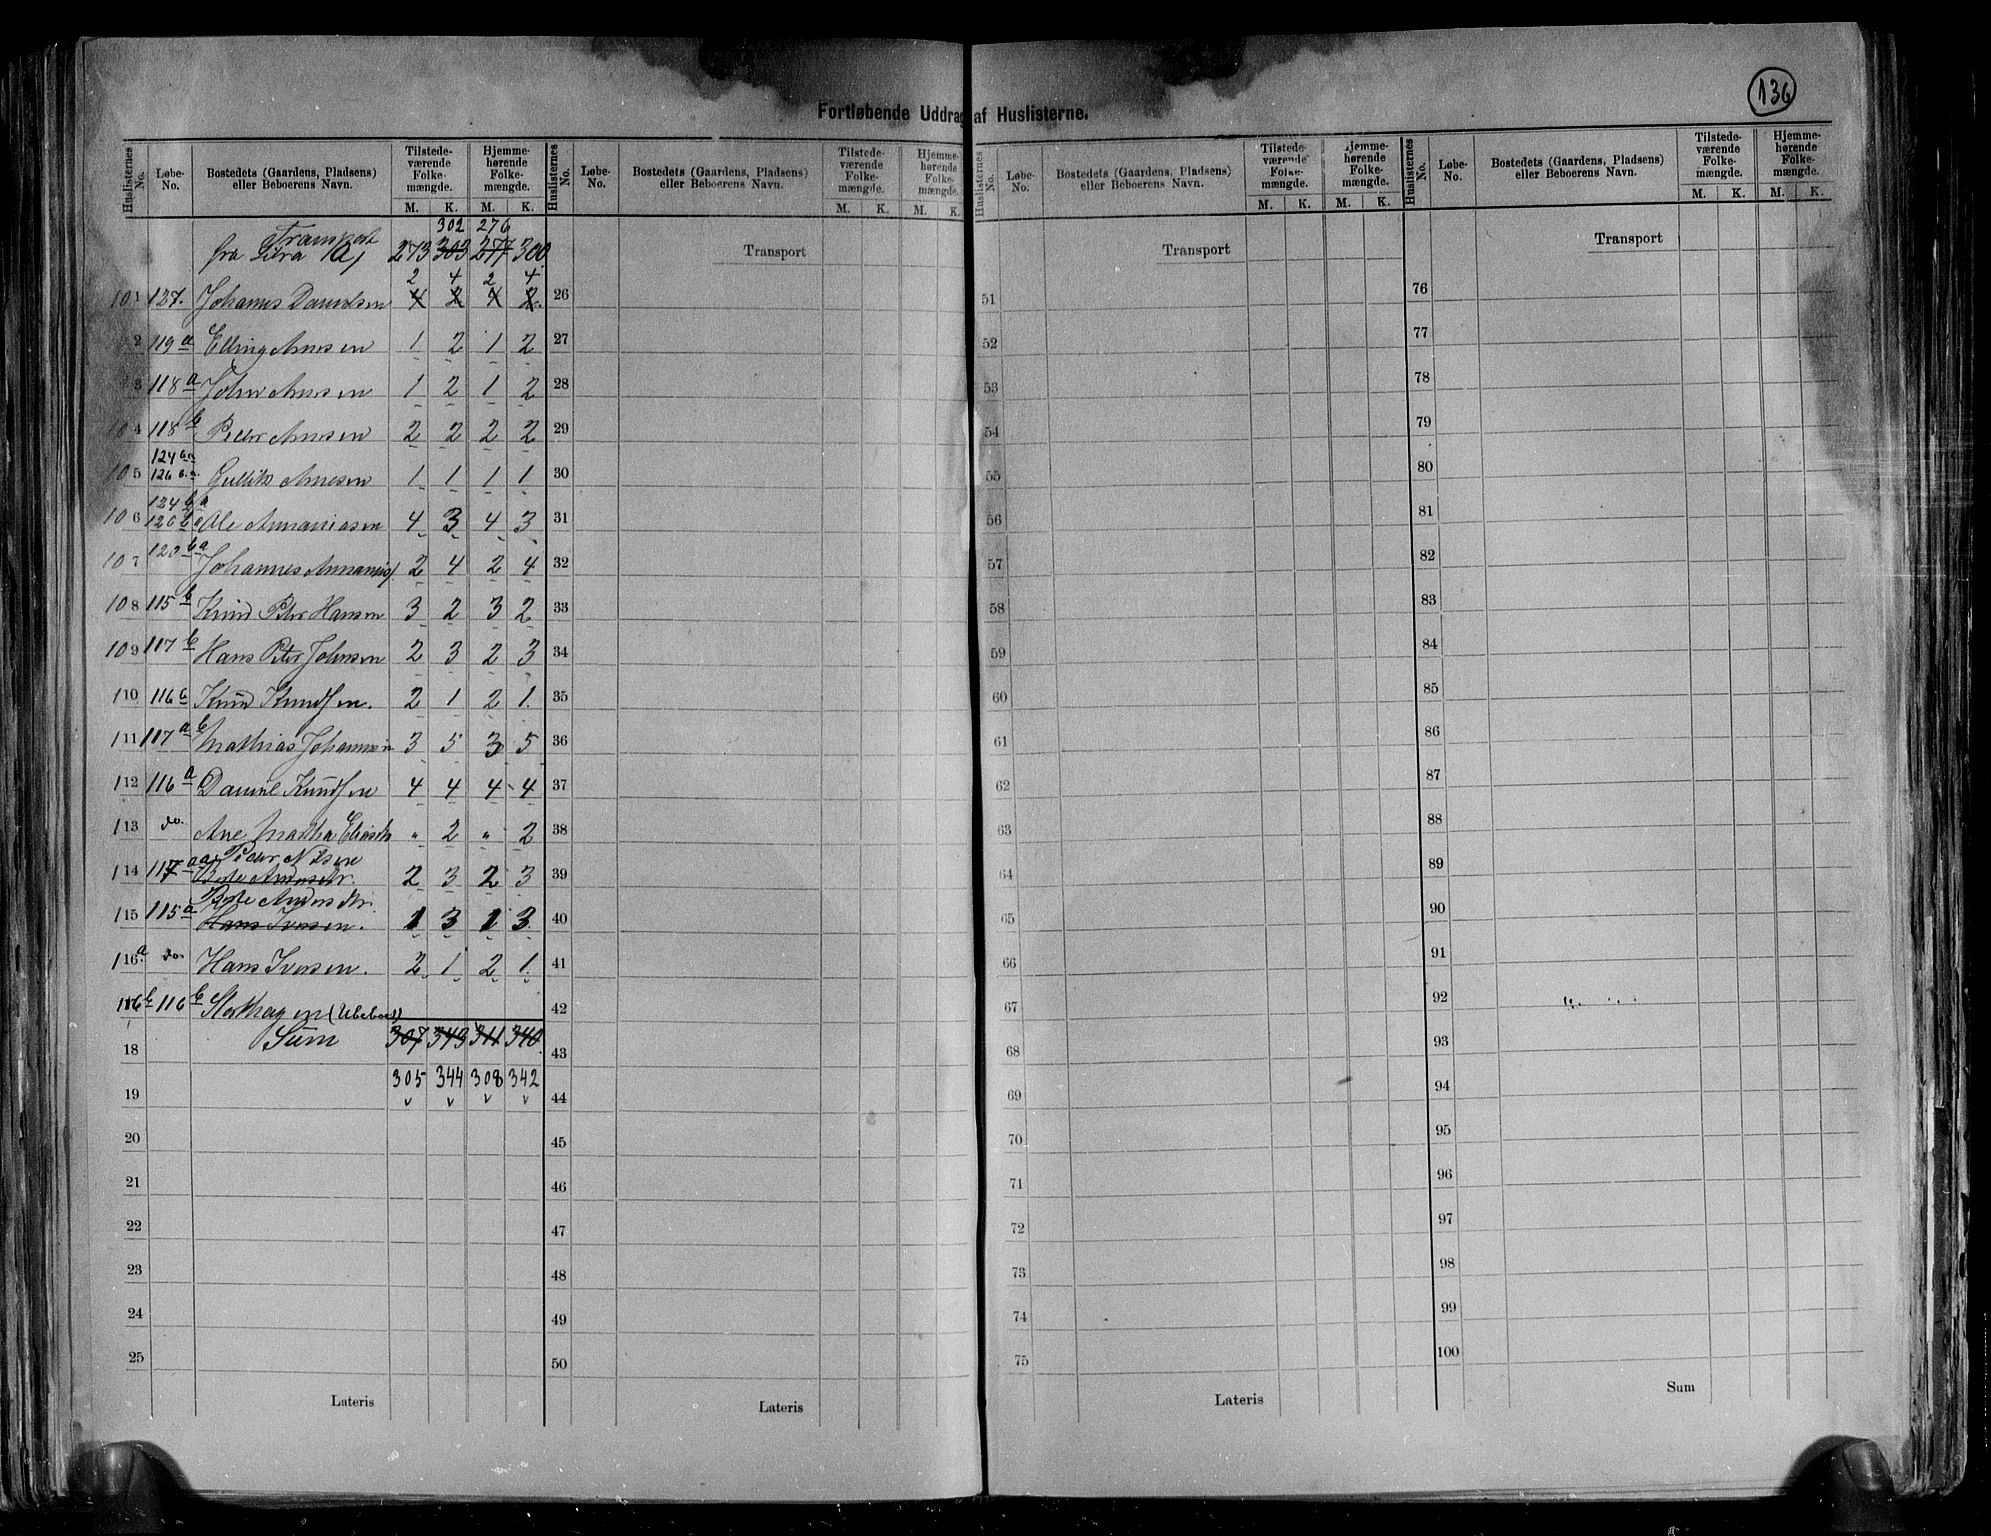 136
Fortløbende Uddrag af Huslisterne.
Huslisternes No. Løbe-No. Bostedets (Gaardens, Pladsens) eller Beboerens Navn. Tilstedeværende Folkemængde. Hjemmehørende Folkemængde.
M. K. M. K.
302 276
Transport
fra 273 303 277 300
2 4 2 4
101 127. Johannes Danielsen 4 2 4 2
2 119 a Elling Arnesen 1 2 1 2
3 118 a John Arnesen 1 2 1 2
104 118 b Peder Arnesen 2 2 2 2
105 Gullik Arnesen 1 1 1 1
106 Ole Ananiasen 4 3 4 3
107 Johannes Ananias 2 4 2 4
108 115 b Knud Peter Hansen 3 2 3 2
109 117 b Hans Peter Johnsen 2 3 2 3
110 116 b Knud Knudsen. 2 1 2 1.
111 117 a b Mathias Johannesen 3 5 3 5
112 116 a Daniel Knudsen 4 4 4 4
113 do. Ane Martha Eliasdtr " 2 " 2
Peder Nilsen
114 117 Berte Andersdtr. 2 3 2 3
Berte Andersdtr.
115 115 a Hans Iversen. 1 3 1 3.
116 a do. Hans Iversen. 2 1 2 1.
116 b 116 b Storhagen (Ubeboet)
Sum 307 343 311 340
18
305 344 308 342
19 v v v v
20
21
22
23
24
25
Lateris
Huslisternes No. Løbe-No. Bostedets (Gaardens, Pladsens) eller Beboerens Navn. Tilstedeværende Folkemængde. Hjemmehørende Folkemængde.
M. K. M. K.
Transport
26
27
28
29
30
31
32
33
34
35
36
37
38
39
40
41
42
43
44
45
46
47
48
49
50
Lateris
Huslisternes No. Løbe-No. Bostedets (Gaardens, Pladsens) eller Beboerens Navn. Tilstedeværende Folkemængde. Hjemmehørende Folkemængde.
M. K. M. K.
Transport
51
52
53
54
55
56
57
58
59
60
61
62
63
64
65
66
67
68
69
70
71
72
73
74
75
Lateris
Huslisternes No. Løbe-No. Bostedets (Gaardens, Pladsens) eller Beboerens Navn. Tilstedeværende Folkemængde. Hjemmehørende Folkemængde.
M. K. M. K.
Transport
76
77
78
79
80
81
82
83
84
85
86
87
88
89
90
91
92
93
94
95
96
97
98
99
100
Sum